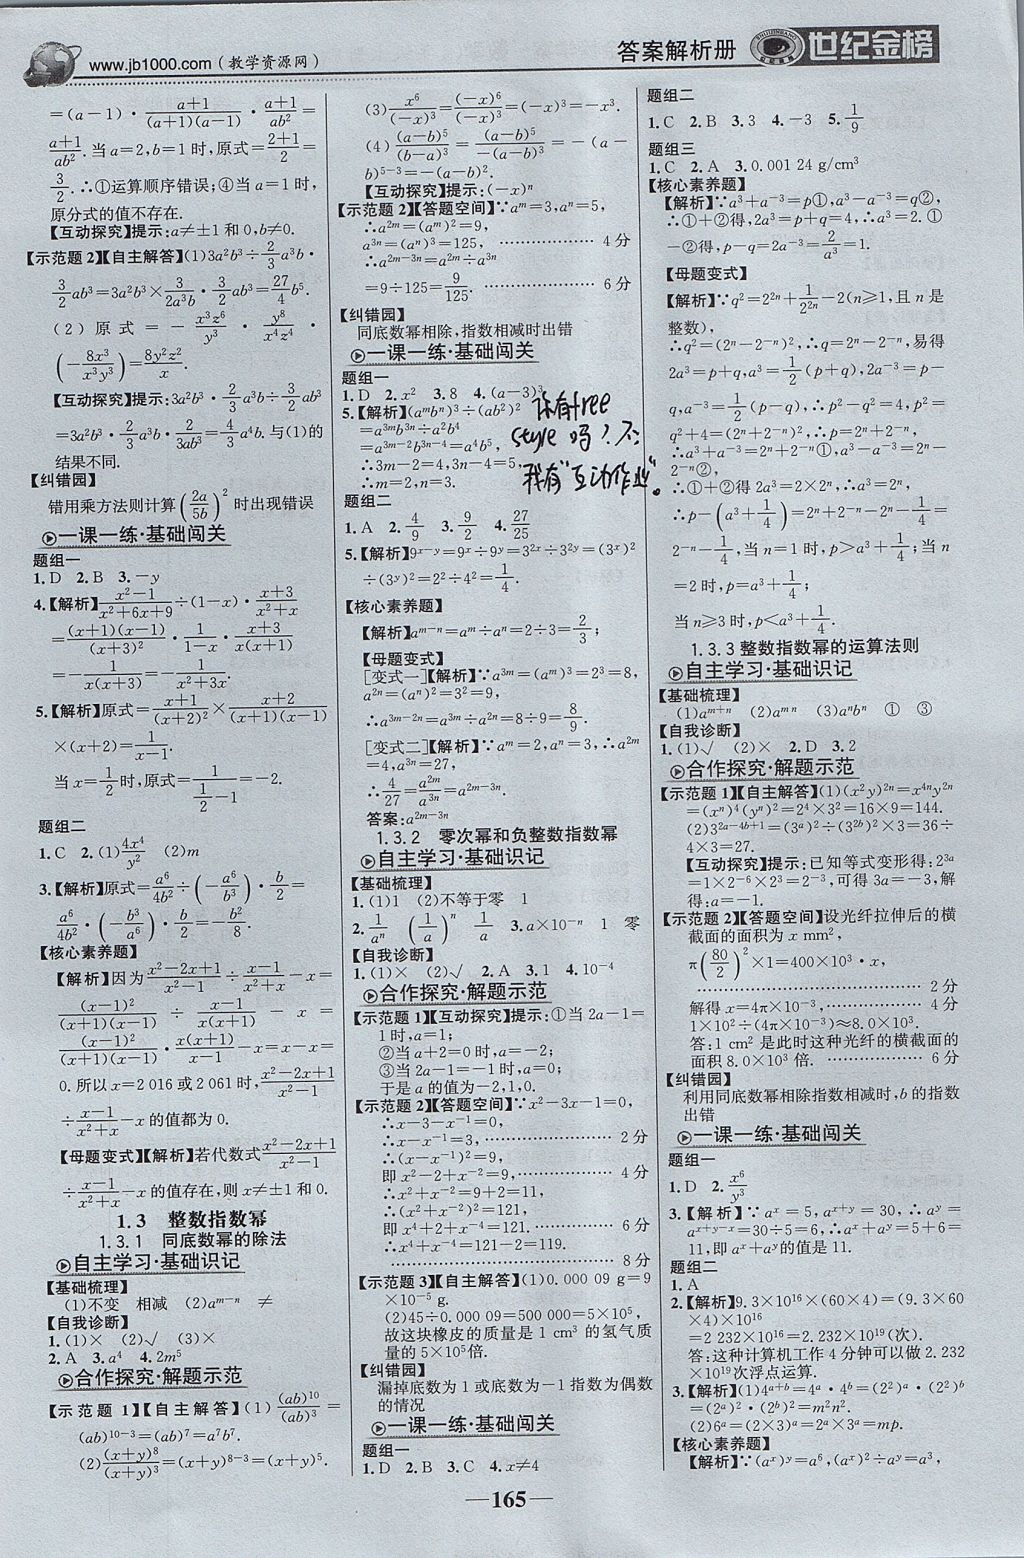 www.jb1000.com(教学资源网)
答案解析册 世纪金榜
=(a-1)·\frac{a+1}{(a+1)(a-1)}·\frac{a+1}{ab^2}=
\frac{a+1}{ab^2}.当a=2,b=1时,原式=\frac{2+1}{2}=
\frac{3}{2}.∴①运算顺序错误;④当a=1时,
原分式的值不存在.
【互动探究】提示:a≠±1和0,b≠0.
【示范题2】【自主解答】(1)3a^2b^3÷\frac{2}{3}a^3b·
\frac{3}{2}ab^3=3a^2b^3×\frac{3}{2a^3b}·\frac{3}{2}ab^3=\frac{27}{4}b^5.
(2)原式=-\frac{x^3z^6}{y^3}·\frac{y^8}{x^4z^4}·
(-\frac{8x^3}{x^3y^3})=\frac{8y^2z^2}{x}.
【互动探究】提示:3a^2b^3·\frac{2}{3}a^3b÷\frac{3}{2}ab^3
=3a^2b^3·\frac{2}{3}a^3b·\frac{2}{3ab^3}=\frac{4}{3}a^4b.与(1)的
结果不同.
【纠错园】
错用乘方法则计算(\frac{2a}{5b})^2时出现错误
一课一练·基础闯关
题组一
1.D 2.B 3.-y
4.【解析】\frac{x^2-1}{x^2+6x+9}÷(1-x)·\frac{x+3}{x^2+x}
=\frac{(x+1)(x-1)}{(x+3)^2}·\frac{1}{1-x}·\frac{x+3}{x(x+1)}
=-\frac{1}{x(x+3)}=-\frac{1}{x^2+3x}.
5.【解析】原式=\frac{x+1}{(x+2)^2}×\frac{x+2}{(x+1)(x-1)}
×(x+2)=\frac{1}{x-1}.
当x=\frac{1}{2}时,原式=\frac{1}{\frac{1}{2}-1}=-2.
题组二
1.C 2.(1)\frac{4x^4}{y^2} (2)m
3.【解析】原式=\frac{a^6}{4b^2}÷(-\frac{a^6}{b^3})·\frac{b}{2}=
\frac{a^6}{4b^2}·(-\frac{b^3}{a^6})·\frac{b}{2}=-\frac{b^2}{8}.
【核心素养题】
【解析】因为\frac{x^2-2x+1}{x^2-1}÷\frac{x-1}{x^2+x}-x=
\frac{(x-1)^2}{(x+1)(x-1)}÷\frac{x-1}{x(x+1)}-x=
\frac{(x-1)^2}{(x+1)(x-1)}·\frac{x(x+1)}{x-1}-x=x-x=
0.所以x=2 016或2 061时,\frac{x^2-2x+1}{x^2-1}
÷\frac{x-1}{x^2+x}-x的值都为0.
【母题变式】【解析】若代数式\frac{x^2-2x+1}{x^2-1}
÷\frac{x-1}{x^2+x}-x的值存在,则x≠±1和0.
1.3 整数指数幂
1.3.1 同底数幂的除法
自主学习·基础识记
【基础梳理】
(1)不变 相减 (2)a^{m-n} ≠
【自我诊断】
1.(1)× (2)√ (3)×
2.A 3.a^4 4.2m^5
合作探究·解题示范
【示范题1】【自主解答】(1)\frac{(ab)^{10}}{(ab)^3}=
(ab)^{10-3}=(ab)^7=a^7b^7.
(2)\frac{(x+y)^8}{(x+y)^3}=(x+y)^{8-3}=(x+y)^5.
(3)\frac{x^6}{(-x)^3}=\frac{(-x)^6}{(-x)^3}=(-x)^3=-x^3.
(4)\frac{(a-b)^5}{(b-a)^3}=\frac{(a-b)^5}{-(a-b)^3}=-(a-
b)^{5-3}=-(a-b)^2.
【互动探究】提示:(-x)^n
【示范题2】【答题空间】∵a^m=3,a^n=5,
∴a^{2m}=(a^m)^2=9,
a^{3n}=(a^n)^3=125, ……………… 4分
∴a^{2m-3n}=a^{2m}÷a^{3n}
=9÷125=\frac{9}{125}. ……………… 6分
【纠错园】
同底数幂相除,指数相减时出错
一课一练·基础闯关
题组一
1.D 2.x^2 3.8 4.(a-3)^3
5.【解析】(a^mb^n)^3÷(ab^2)^2
=a^{3m}b^{3n}÷a^2b^4
=a^{3m-2}b^{3n-4}=a^4b^5,
∴3m-2=4,3n-4=5,
∴m=2,n=3.
你有free
style吗?不
我有"互动作业"。
题组二
1.A 2.\frac{4}{9} 3.\frac{9}{2} 4.\frac{27}{25}
5.【解析】9^{x-y}=9^x÷9^y=3^{2x}÷3^{2y}=(3^x)^2
÷(3^y)^2=2^2÷4^2=\frac{1}{4}.
【核心素养题】
【解析】a^{m-n}=a^m÷a^n=2÷3=\frac{2}{3};
【母题变式】
[变式一]【解析】∵a^{3m}=(a^m)^3=2^3=8,
a^{2n}=(a^n)^2=3^2=9,
∴a^{3m-2n}=a^{3m}÷a^{2n}=8÷9=\frac{8}{9}.
[变式二]【解析】∵a^m=2,a^n=3,∴a^{2m}
=4,a^{3n}=27,
∴\frac{4}{27}=\frac{a^{2m}}{a^{3n}}=a^{2m-3n}.
答案:a^{2m-3n}
1.3.2 零次幂和负整数指数幂
自主学习·基础识记
【基础梳理】
1.(1)1 (2)不等于零 1
2.\frac{1}{a^n} (\frac{1}{a})^n \frac{1}{a} 3.a×10^{-n} 1 零
【自我诊断】
1.(1)× (2)√ 2.A 3.1 4.10^{-4}
合作探究·解题示范
【示范题1】【互动探究】提示:①当2a-1=
1时,a=1;
②当a+2=0时,a=-2;
③当2a-1=-1时,a=0;
于是a的值为-2,1,0.
【示范题2】【答题空间】∵x^2-3x-1=0,
∴x-3-x^{-1}=0,
∴x-x^{-1}=3, ……………… 2分
∴(x-x^{-1})^2=9,
即x^2-2+x^{-2}=9, ……………… 4分
∴x^2+x^{-2}=9+2=11,
∴(x^2+x^{-2})^2=121,
即x^4+2+x^{-4}=121. ……………… 6分
∴x^4+x^{-4}=121-2=119.
……………… 8分
【示范题3】【自主解答】(1)0.000 09 g=9
×10^{-5} g.
(2)45÷0.000 09=500 000=5×10^5,
故这块橡皮的质量是1 cm^3的氢气质
量的5×10^5倍.
【纠错园】
漏掉底数为1或底数为-1指数为偶数
的情况
一课一练·基础闯关
题组一
1.D 2.B 3.C 4.x≠4
题组二
1.C 2.B 3.3 4.-3 5.\frac{1}{9}
题组三
1.C 2.A 3.0.001 24 g/cm^3
【核心素养题】
【解析】∵a^3+a^{-3}=p①,a^3-a^{-3}=q②,
∴①+②得,2a^3=p+q=4,∴a^3=2.①
-②得,p-q=2a^{-3}=\frac{2}{a^3}=1.
【母题变式】
【解析】∵q^2=2^{2n}+\frac{1}{2^{2n}}-2(n≥1,且n是
整数),
∴q^2=(2^n-2^{-n})^2,∴q=2^n-2^{-n},易得
2a^3=p+q,∴a^3=\frac{1}{2}(p+q),2a^{-3}=p-
q,a^{-3}=\frac{1}{2}(p-q),∴p^2-q^2=4,p^2=
q^2+4=(2^n+2^{-n})^2,∴p=2^n+2^{-n},
∴a^3+a^{-3}=2^n+2^{-n}①,a^3-a^{-3}=q=2^n-2^{-n}②,
∴①+②得2a^3=2×2^n,∴a^3=2^n,
∴p-(a^3+\frac{1}{4})=2^n+2^{-n}-2^n-\frac{1}{4}=
2^{-n}-\frac{1}{4},当n=1时,p>a^3+\frac{1}{4};当n
=2时,p=a^3+\frac{1}{4};
当n≥3时,p<a^3+\frac{1}{4}.
1.3.3整数指数幂的运算法则
自主学习·基础识记
【基础梳理】
(1)a^{m+n} (2)a^{mn} (3)a^nb^n ① ③
【自我诊断】
1.(1)√ (2)× 2.D 3.2
合作探究·解题示范
【示范题1】【自主解答】(1)(x^2y)^{2n}=x^{4n}y^{2n}
=(x^n)^4(y^n)^2=2^4×3^2=16×9=144.
(2)3^{2a-4b+1}=(3^a)^2÷(3^{2b})^2×3=36÷
4×3=27.
【互动探究】提示:已知等式变形得:2^{3a}
=1×2^{-6}×2^3=2^{-3},可得3a=-3,解
得:a=-1.
【示范题2】【答题空间】设光纤拉伸后的横
截面的面积为x mm^2,
π(\frac{80}{2})^2×1=400×10^3·x,
……………… 2分
解得x=4π×10^{-3}, ……………… 4分
1×10^2÷(4π×10^{-3})≈8.0×10^3.
答:1 cm^2是此时这种光纤的横截面的
面积8.0×10^3倍. ……………… 6分
【纠错园】
利用同底数幂相除指数相减时,b的指数
出错
一课一练·基础闯关
题组一
1.D 2.\frac{x^6}{y^3}
3.【解析】∵a^x=5,a^{x+y}=30,∴a^y=
a^{x+y-x}=30÷5=6,∴a^x+a^y=5+6=
11,即a^x+a^y的值是11.
题组二
1.A
2.【解析】9.3×10^{16}×(60×4)=(9.3×60
×4)×10^{16}
=2 232×10^{16}=2.232×10^{19}(次).
答:这种计算机工作4分钟可以做2.232
×10^{19}次浮点运算.
3.【解析】(1)4^{a+b}=4^a·4^b=(2^2)^a·(2^2)^b
=(2^a)^2·(2^b)^2=m^2n^2.
(2)6^a=(2×3)^a=2^a×3^a=mp.
【核心素养题】
【解析】∵(a^x)^y=a^6,(a^x)^2÷a^y=a^3,
—165—